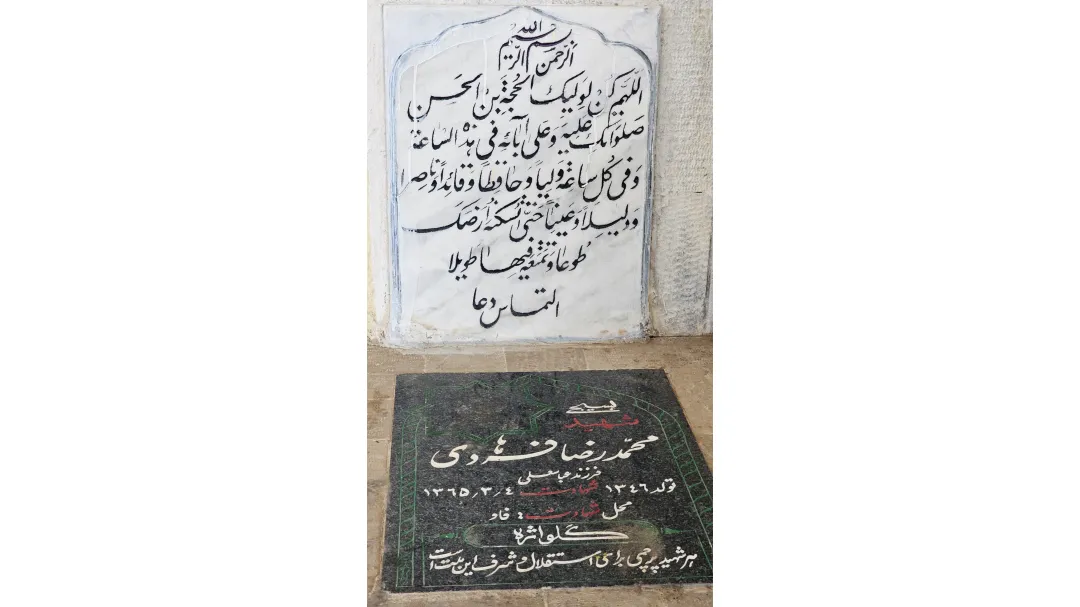 بسم الله
الرّحمن الرّحیم
اللّهم کن لولیک الحجة بن الحسن
صلواتک علیه وعلی آبائه فی هذه الساعة
وفی کل ساعة ولیاً وحافظاً وقائداً وناصرا
ودلیلاً وعیناً حتی تسکنه ارضک
طوعا وتمتعه فیها طویلا
التماس دعا
بسیجی
شهید
محمّدرضا فرهودی
فرزند عباسعلی
تولد ۱۳۴٦ شهادت ۱۳٦۵/۳/۴
محل شهادت : فاو
گلواثره
هر شهید پرچمی برای استقلال و شرف این ملت است